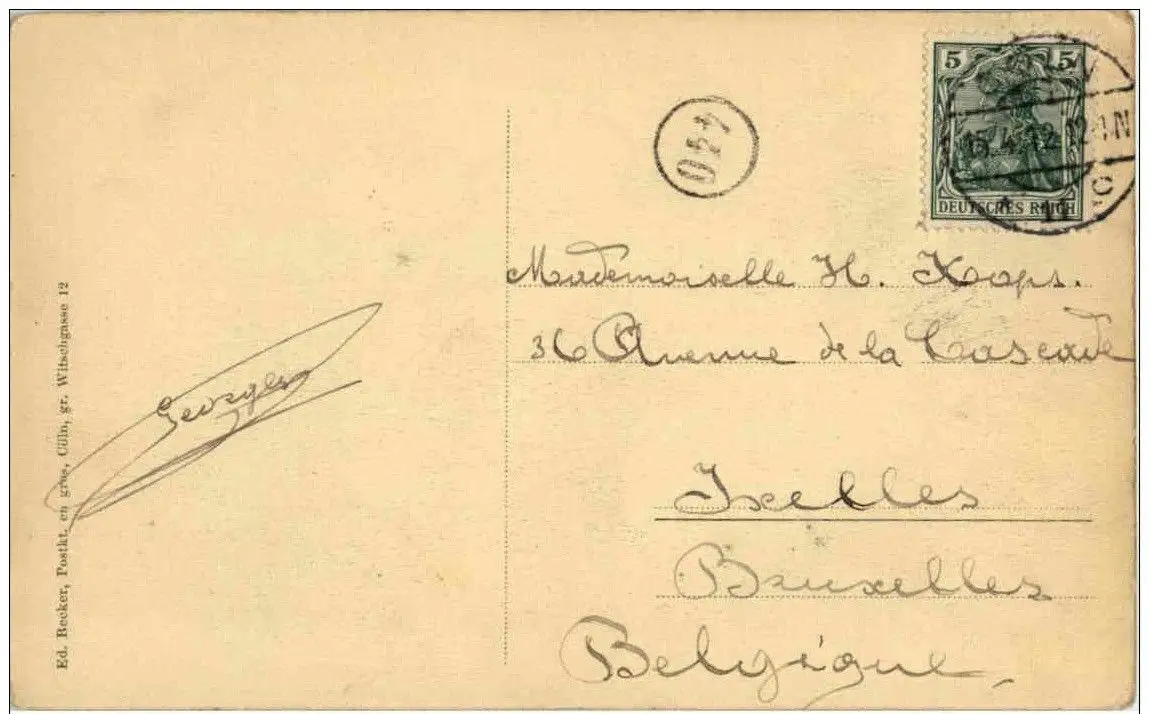 5 5
DEUTSCHES REICH
15.4.12.12-1N
440
Mademoiselle H. Kops.
36 Avenue de la Cascade
Ixelles
Bruxelles
Belgique
Georges
Ed. Recker, Postkt. en gros, Cöln, gr. Witschgasse 12